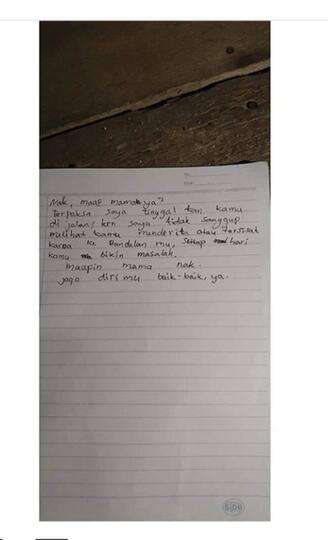 Nak, maaf mama ya"
Terpaksa saya tinggal kan kamu
di jalan, krn saya tidak sanggup
melihat kamu menderita atau tersiksa
karna ke Bandalan mu, setiap hari
kamu bikin masalah.
Maapin mama nak.
jaga diri mu baik-baik, ya.
SIDU